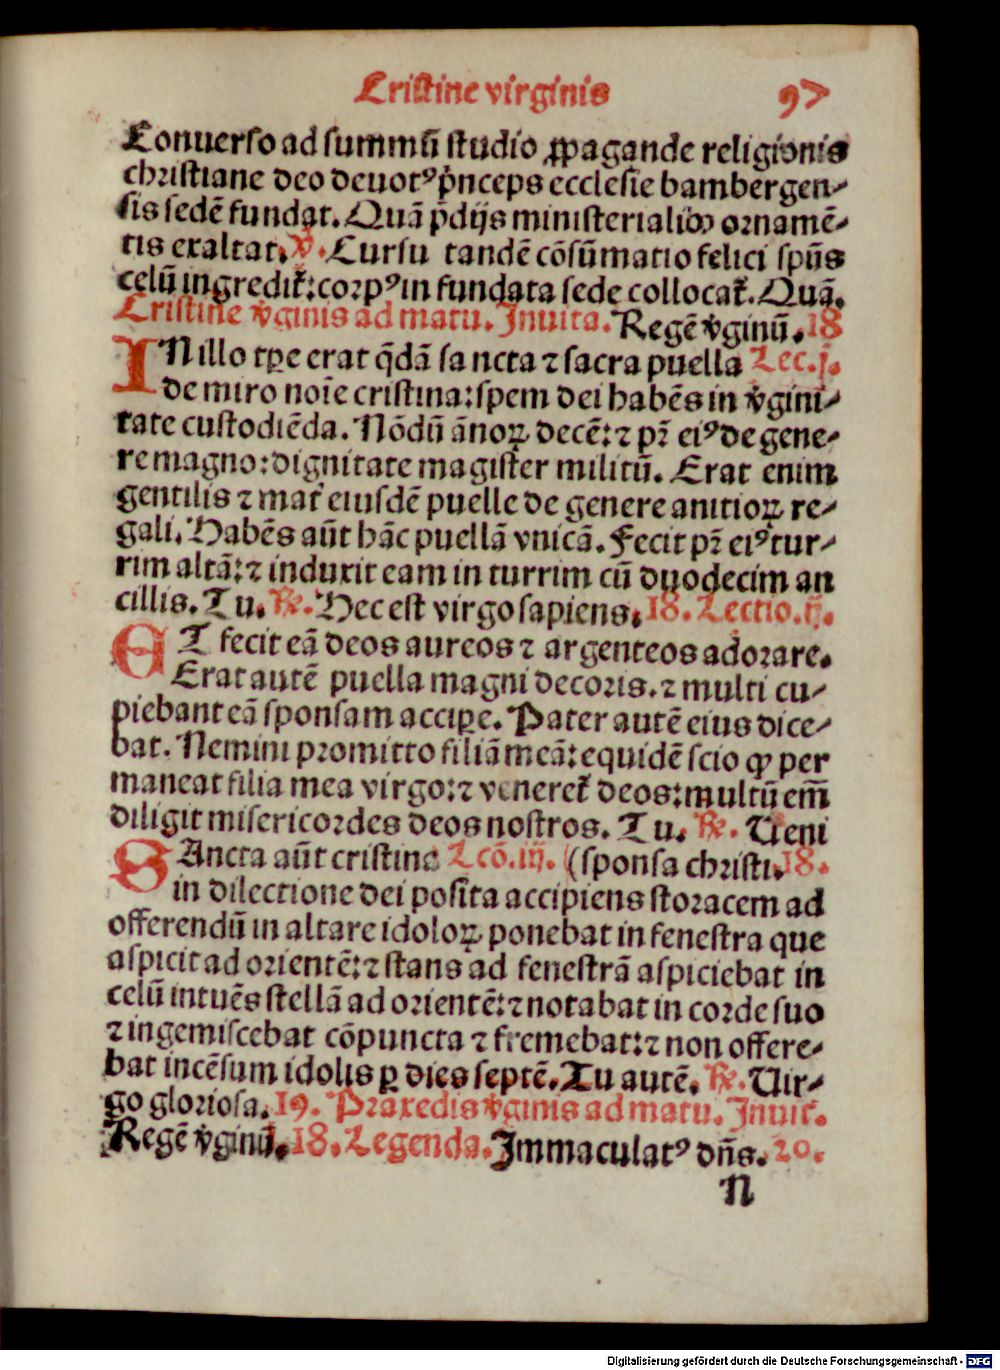 Cristine virginis 97
Conuerso ad summū studio ꝓpagande religionis
christiane deo deuotꝰ p̄nceps ecclesie bambergen-
sis sedē fundat. Quā p̄dijs ministerialibꝫ ornamē-
tis exaltat. ℣. Cursu tandē cōsūmatio felici spūs
celū ingredit᷑: corpꝰ in fundata sede collocat᷑. Quā.
Cristine v̓ginis ad matu. Inuita. Regē v̓ginū. 18
IN illo tꝑe erat q̄dā sancta ⁊ sacra puella Lec. j.
de miro noīe cristina: spem dei habēs in v̓gini-
tate custodiēda. Nōdū ānoꝝ decē: ⁊ pr̄ eiꝰ de gene-
re magno: dignitate magister militū. Erat enim
gentilis ⁊ mat̓ eiusdē puelle de genere anitioꝝ re-
gali. Habēs aūt hāc puellā vnicā. Fecit pr̄ eiꝰ tur-
rim altā: ⁊ induxit eam in turrim cū duodecim an
cillis. Tu. ℞. Hec est virgo sapiens. 18. Lectio. ij.
ET fecit eā deos aureos ⁊ argenteos adorare.
Erat autē puella magni decoris. ⁊ multi cu-
piebant eā sponsam acciꝑe. Pater autē eius dice-
bat. Nemini promitto filiā meā: equidē scio ꝙ per
maneat filia mea virgo: ⁊ veneret᷑ deos: multū em̄
diligit misericordes deos nostros. Tu. ℞. Ueni
SAncta aūt cristina Lcō. iij. (sponsa christi. 18.
in dilectione dei posita accipiens storacem ad
offerendū in altare idoloꝝ ponebat in fenestra que
aspicit ad orientē: ⁊ stans ad fenestrā aspiciebat in
celū intuēs stellā ad orientē: ⁊ notabat in corde suo
⁊ ingemiscebat cōpuncta ⁊ fremebat: ⁊ non offere-
bat incēsum idolis ꝑ dies septē. Tu autē. ℞. Uir-
go gloriosa. 19. Praxedis v̓ginis ad matu. Inuit.
Regē v̓ginū. 18. Legenda. Immaculatꝰ dn̄s. 20.
N
Digitalisierung gefördert durch die Deutsche Forschungsgemeinschaft - DFG